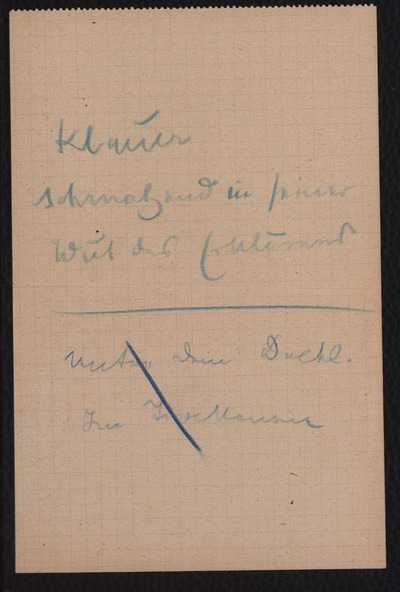 Klauer
schmatzend in seiner
Wut des Erklärens
unter dem Deckel.